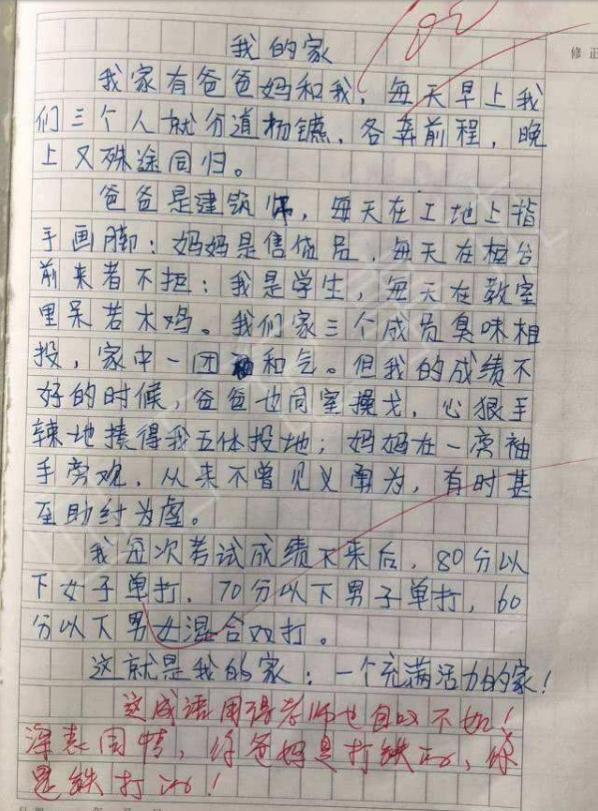 我的家
我家有爸爸妈和我，每天早上我
们三个人就分道扬镳，各奔前程，晚
上又殊途同归。
爸爸是建筑师，每天在工地上指
手画脚；妈妈是售货员，每天在柜台
前来者不拒；我是学生，每天在教室
里呆若木鸡。我们家三个成员臭味相
投，家中一团和气。但我的成绩不
好的时候，爸爸也同室操戈，心狠手
辣地揍得我五体投地；妈妈在一旁袖
手旁观，从来不曾见义勇为，有时甚
至助纣为虐。
我每次考试成绩下来后，80分以
下女子单打，70分以下男子单打，60
分以下男女混合双打。
这就是我的家：一个充满活力的家！
这成语用得老师也自叹不如！
深表同情，你爸妈是打铁的，你
是铁打的！
修正